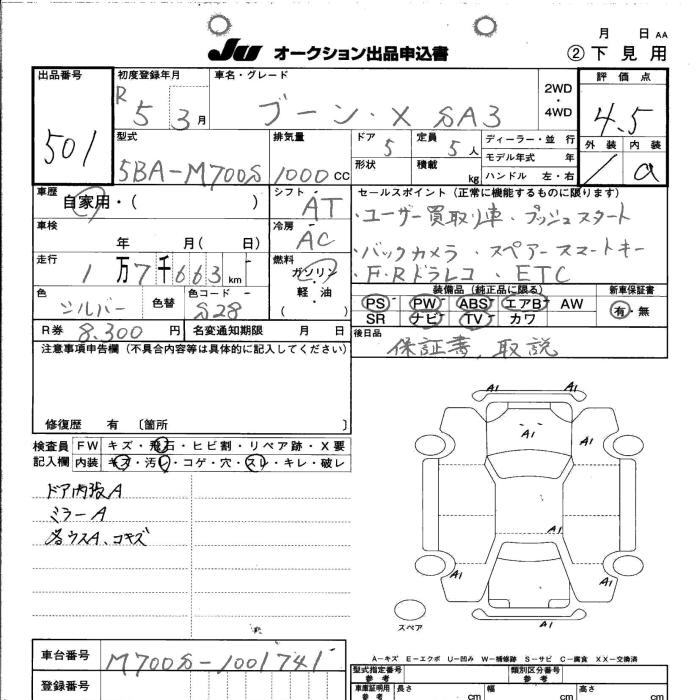 月 日 AA
JU オークション出品申込書 ②下見用
出品番号 初度登録年月 車名・グレード 評価点
501 R5 3月 ブーン・X SA3 2WD・4WD 4.5
型式 排気量 ドア 定員 ディーラー・並行 外装 内装
5BA-M700S 1000cc 5 5人 モデル年式 年 1 a
形状 積載 kg ハンドル 左・右
車歴 シフト セールスポイント(正常に機能するものに限ります)
自家用・( ) AT ・ユーザー買取り車・プッシュスタート
車検 冷房
年 月( 日) AC ・バックカメラ・スペアースマートキー
走行 燃料 ・F・Rドラレコ・ETC
1万7千663km ガソリン
軽・油
( )
装備品(純正品に限る) 新車保証書
色 色替 色コード PS PW ABS エアB AW 有・無
シルバー S28 SR ナビ TV カワ
R券 8.300円 名変通知期限 月 日 後日品
保証書、取説
注意事項申告欄(不具合内容等は具体的に記入してください)
修復歴 有 〔箇所 〕
検査員 FW キズ・飛石・ヒビ割・リペア跡・X要
記入欄 内装 キズ・汚レ・コゲ・穴・スレ・キレ・破レ
ドア内張A
ミラーA
各ウスA、コキズ
A1 A1
A1
A1
A1
A1 A1
A1
スペア
車台番号 M700S-1001741
A-キズ E-エクボ U-凹み W-補修跡 S-サビ C-腐食 XX-交換済
登録番号
型式指定番号 参考 類別区分番号 参考
車庫証明用 参考 長さ cm 幅 cm 高さ cm